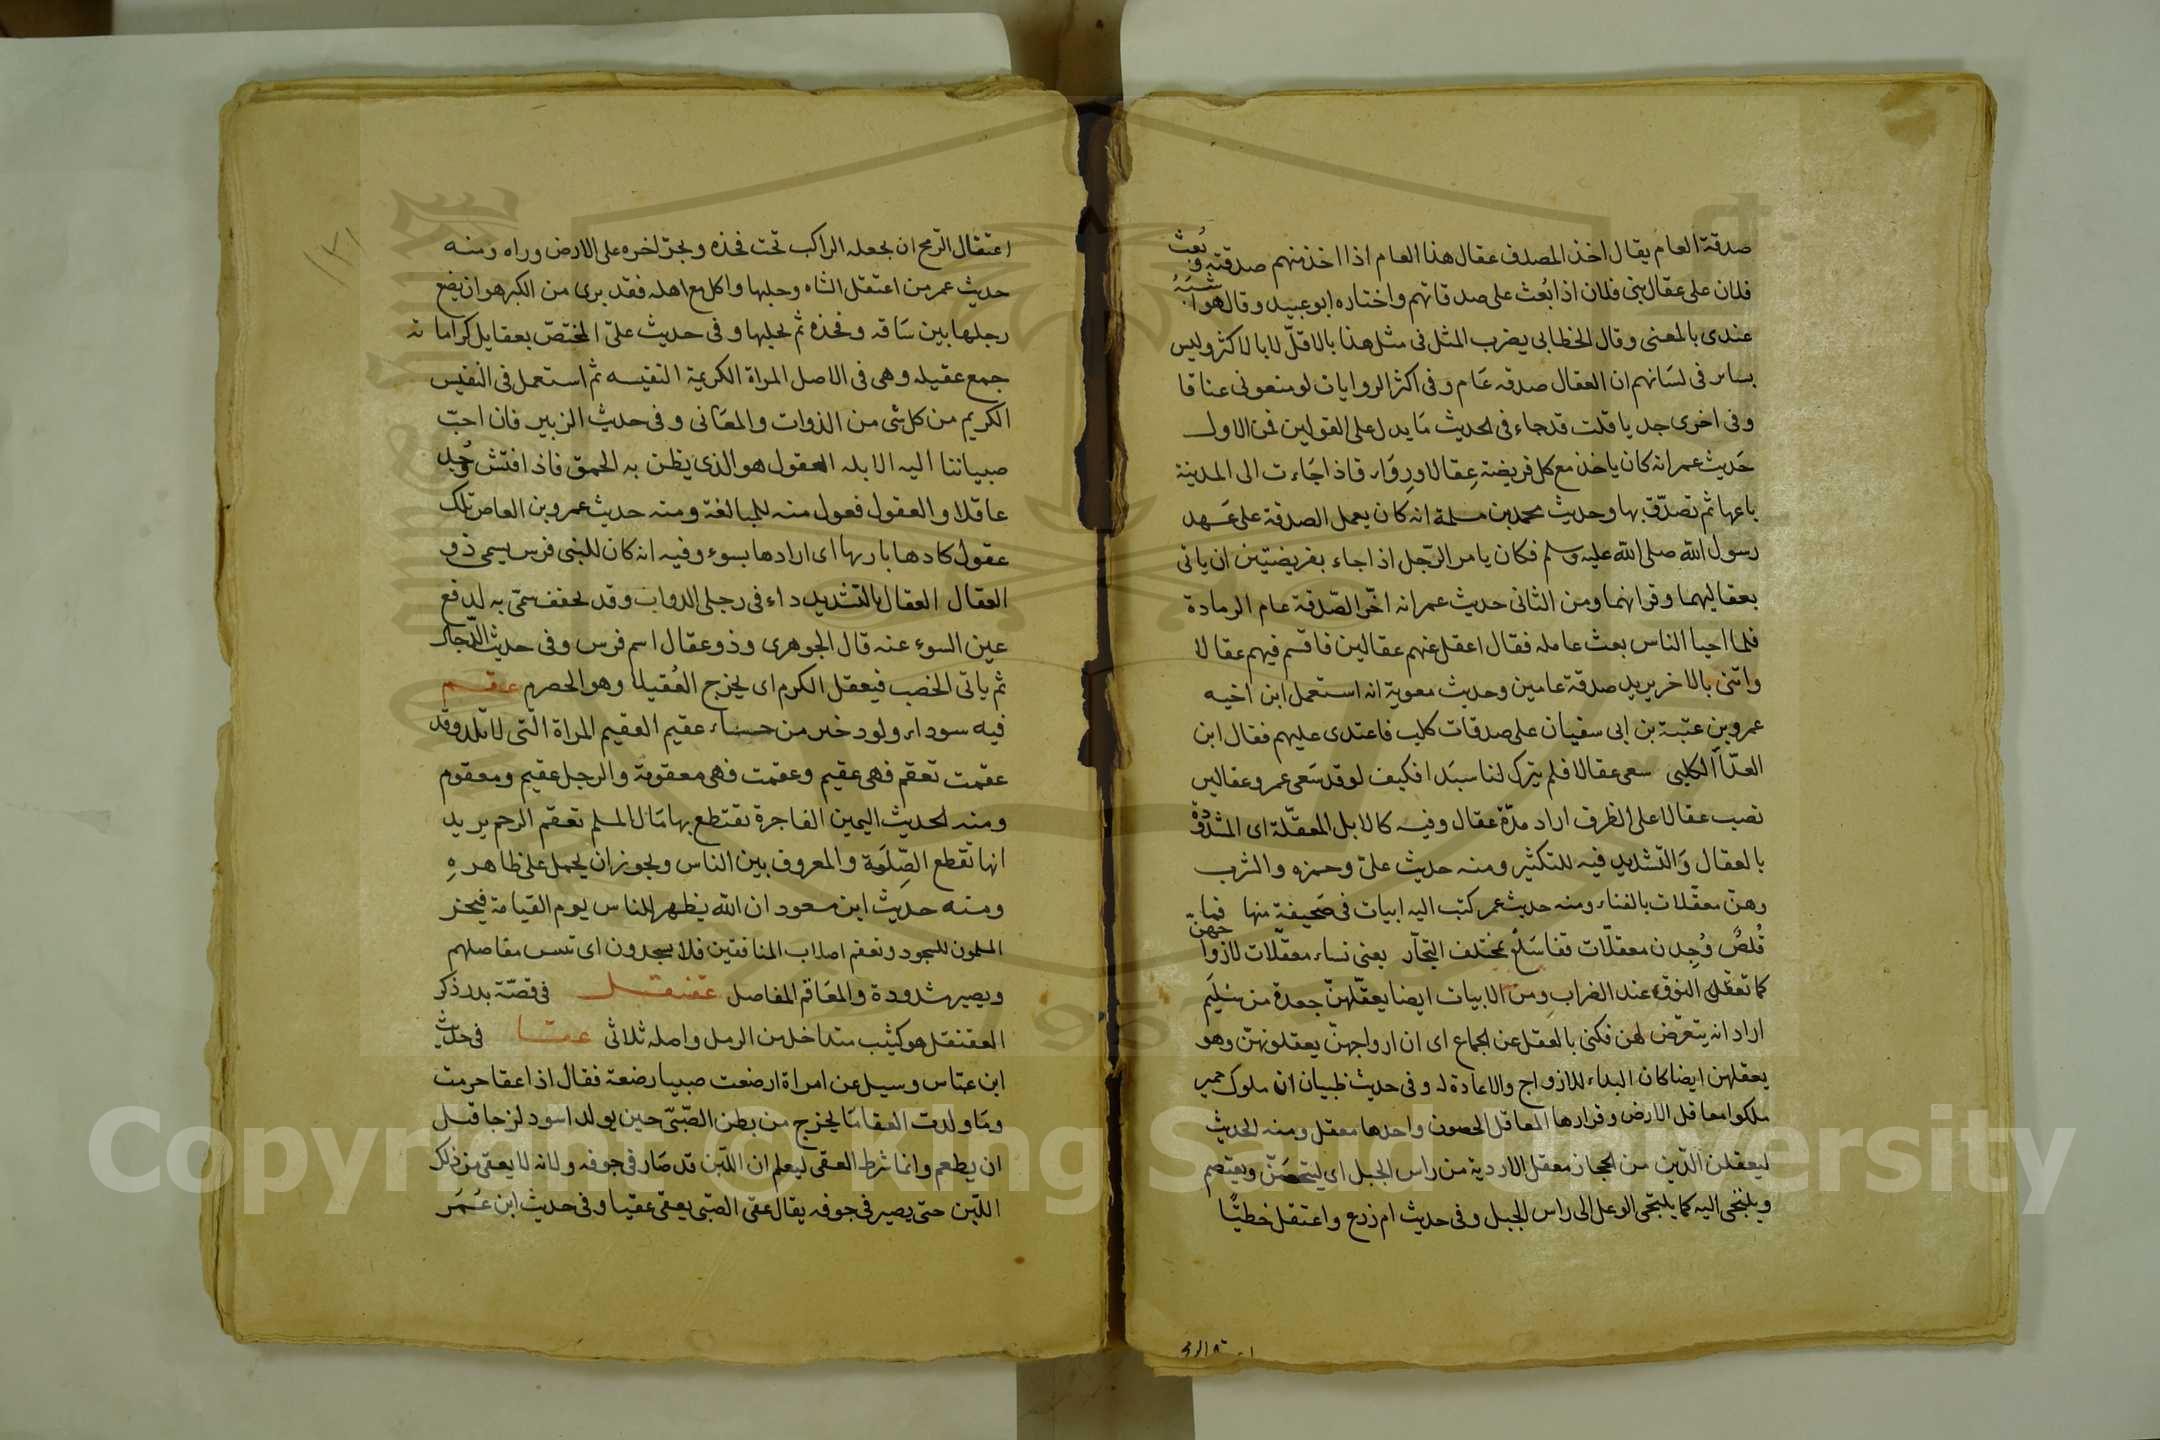 صدقة العام يقال اخذ المصدف عقال هذا العام اذا اخذ منهم صدقته وبُعث
فلان على عقال بنى فلان اذا بُعث على صدقاتهم واختاره ابو عبيد وقال هو اشبَهُ
عندى بالمعنى وقال الخطابى يضرب المثل فى مثل هذا بالاقلّ لا بالاكثر وليس
بساير فى لسَانهم ان العقال صدقه عَام وفى اكثر الروايات لو منعونى عناقا
وفى اخرى جديا قلت قد جاء فى الحديث مَا يدل على القولين فمن الاول
حَديث عمر انه كان ياخذ مع كل فريضة عِقالا ورِوَاء فاذا جَاءت الى المدينة
باعها ثم تصدّق بها وحديث محمد بن مسلمة انه كان يعمل الصدقة على عَهد
رسول الله صلى الله عليه وسلم فكان يامر الرّجل اذا جاء بفريضتين ان ياتى
بعقاليهما وقرانهما ومن الثانى حديث عمر انه اخّر الصّدقة عام الرمادة
فلما احيا الناس بعث عامله فقال اعقل عنهم عقالين فاقسم فيهم عقالا
واتنى بالاخر يريد صدقة عامين وحديث معوية انه استعمل ابن اخيه
عمرو بن عتبة بن ابى سفيان على صدقات كلب فاعتدى عليهم فقال ابن
العدّاء الكلبى سعى عقالا فلم يترك لنا سبَدا فكيف لو قد سَعى عمرو عقالين
نصب عقالا على الظرف اراد مدّة عقال وفيه كالابل المعقّلة اى المشدودة
بالعقال وَالتّشديد فيه للتكثير ومنه حديث علىّ وحمزه والشرب
وهنّ معقّلات بالفناء ومنه حديث عمر كتب اليه ابيات فى صَحيفة منها فما
قُلصٌ وُجِدن معقلّات قفا سَلع بمختلف التجّار يعنى نساء معقّلات لازواجهنّ
كما تعقل النوق عند الضراب ومن الابيات ايضا يعقّلهنّ جعدة من سُليَم
اراد انه يتعرّض لهن فكنى بالعقل عن الجماع اى ان ازواجهنّ يعقلونهنّ وهو
يعقلهن ايضا كان البداء للازواج والاعادة له وفى حديث ظبيان ان ملوك حمير
ملكوا معاقل الارض وقرارها المعاقل الحصون واحدها معقل ومنه الحديث
ليعقلن الدّين من الحجاز معقل الاروية من راس الجبل اى ليتحصّن ويعتصم
ويلتجى اليه كما يلتجى الوعل الى راس الجبل وفى حديث ام زرع واعتقل خطيًّا
اعتقال الرّمح ان يجعله الراكب تحت فخذه ويجرّ اخره على الارض وراه ومنه
حديث عمر من اعتقل الشاه وحلبها واكل مع اهله فقد برى من الكبر هو ان يضع
رجلها بين سَاقه وفخذه ثم يحلبها وفى حديث علىّ المختصّ بعقايل كراماته
جمع عقيله وهى فى الاصل المراة الكريمة النفيسه ثم استعمل فى النفيس
الكريم من كل شى من الذوات والمعَانى وفى حديث الزبير فان احبّ
صبياننا اليه الابله العقول هو الذى يظن به الحمق فاذا فتش وُجد
عاقلا والعقول فعول منه للمبالغة ومنه حديث عمرو بن العاص تلك
عقول كادها باريها اى ارادها بسوء وفيه انه كان للنبى فرس يسمى ذو
العقال العقال بالتشديد داء فى رجلى الدواب وقد يخفف سمّى به لدفع
عين السوء عنه قال الجوهرى وذو عقال اسم فرس وفى حديث الدّجال
ثم ياتى الخصب فيعقل الكرم اى يخرج العُقيلا وهو الحصرم عقم
فيه سوداء ولود خير من حسناء عقيم العقيم المراة الّتى لا تلد وقد
عقمت تعقم فهى عقيم وعقمت فهى معقومة والرجل عقيم ومعقوم
ومنه الحديث اليمين الفاجرة تقتطع بها مَال المسلم تعقم الرحم يريد
انها تقطع الصِّلَة والمعروف بين الناس ويجوز ان يحمل على ظاهرهِ
ومنه حديث ابن مسعود ان الله يظهر للناس يوم القيامة فيخر
المسلمون للسجود وتعقم اصلاب المنافقين فلا يسجدون اى تيبس مفاصلهم
ويصير مشدودة والمعَاقم المفاصل عقنقل فى قصّة بدر ذكر
العقنقل هو كثيب متداخل من الرمل واصله ثلاثى عقا فى حديث
ابن عبّاس وسيل عن امراة ارضعت صبيا رضعة فقال اذا عقا حرمت
ومَا ولدت العقا مَا يخرج من بطن الصّبىّ حين يولد اسود لزجا قبل
ان يطعم وانما شرط العقى ليعلم ان اللّبن قد صَار فى جوفه ولانه لا يعقى من ذلك
اللّبن حتىّ يصير فى جوفه يقال عقى الصبّى يعقى عقيا وفى حديث ابن عُمَر
١٣١
Copyright © King Saud University